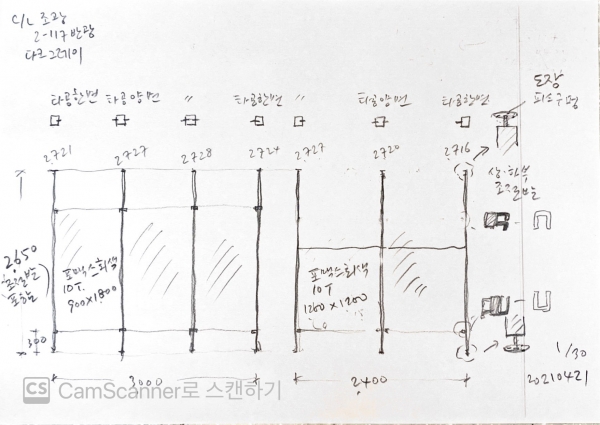 C/L 조장
2-117 반광
다크그레이
타공한면 타공양면 〃 타공한면 〃 타공양면 타공한면
도장
피스구멍
2721 2727 2728 2724 2727 2720 2716
상·하부
조절발
2650
조절발
포함
포맥스회색
10T.
900×1800
포맥스회색
10T
1200×1200
300
3000
2400
1/30
20210421
CS CamScanner로 스캔하기